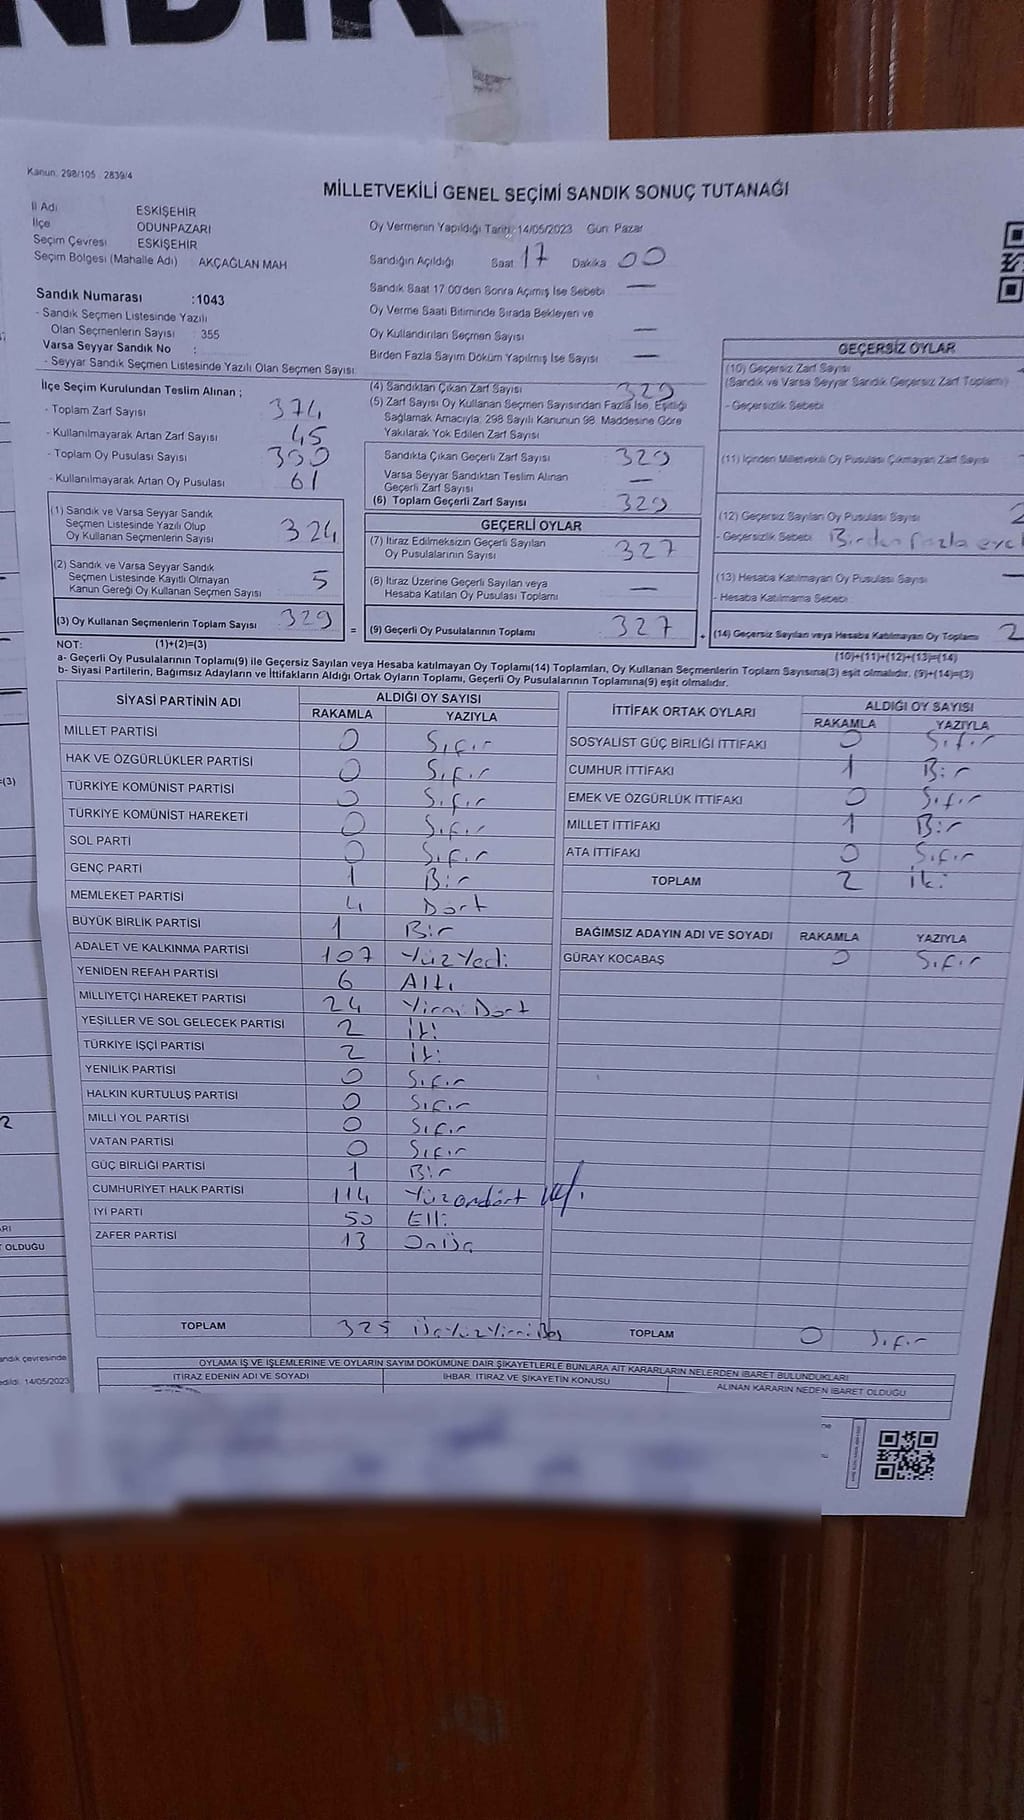 NDIK
Kanun: 298/105 : 2839/4
MİLLETVEKİLİ GENEL SEÇİMİ SANDIK SONUÇ TUTANAĞI
İl Adı ESKİŞEHİR
İlçe ODUNPAZARI
Seçim Çevresi ESKİŞEHİR
Seçim Bölgesi (Mahalle Adı) AKÇAĞLAN MAH
Oy Vermenin Yapıldığı Tarih: 14/05/2023 Gün: Pazar
Sandığın Açıldığı Saat 17 Dakika 00
Sandık Saat 17.00'den Sonra Açılmış İse Sebebi —
Oy Verme Saati Bitiminde Sırada Bekleyen ve
Oy Kullandırılan Seçmen Sayısı —
Birden Fazla Sayım Döküm Yapılmış İse Sayısı —
Sandık Numarası :1043
- Sandık Seçmen Listesinde Yazılı
Olan Seçmenlerin Sayısı : 355
Varsa Seyyar Sandık No :
- Seyyar Sandık Seçmen Listesinde Yazılı Olan Seçmen Sayısı:
İlçe Seçim Kurulundan Teslim Alınan ;
- Toplam Zarf Sayısı 374
- Kullanılmayarak Artan Zarf Sayısı 45
- Toplam Oy Pusulası Sayısı 390
- Kullanılmayarak Artan Oy Pusulası 61
(1) Sandık ve Varsa Seyyar Sandık
Seçmen Listesinde Yazılı Olup
Oy Kullanan Seçmenlerin Sayısı 324
(2) Sandık ve Varsa Seyyar Sandık
Seçmen Listesinde Kayıtlı Olmayan
Kanun Gereği Oy Kullanan Seçmen Sayısı 5
(3) Oy Kullanan Seçmenlerin Toplam Sayısı 329
(4) Sandıktan Çıkan Zarf Sayısı 329
(5) Zarf Sayısı Oy Kullanan Seçmen Sayısından Fazla İse, Eşitliği
Sağlamak Amacıyla; 298 Sayılı Kanunun 98. Maddesine Göre
Yakılarak Yok Edilen Zarf Sayısı
Sandıkta Çıkan Geçerli Zarf Sayısı 329
Varsa Seyyar Sandıktan Teslim Alınan
Geçerli Zarf Sayısı —
(6) Toplam Geçerli Zarf Sayısı 329
GEÇERLİ OYLAR
(7) İtiraz Edilmeksizin Geçerli Sayılan
Oy Pusulalarının Sayısı 327
(8) İtiraz Üzerine Geçerli Sayılan veya
Hesaba Katılan Oy Pusulası Toplamı —
= (9) Geçerli Oy Pusulalarının Toplamı 327
GEÇERSİZ OYLAR
(10) Geçersiz Zarf Sayısı
(Sandık ve Varsa Seyyar Sandık Geçersiz Zarf Toplamı)
- Geçersizlik Sebebi
(11) İçinden Milletvekili Oy Pusulası Çıkmayan Zarf Sayısı
(12) Geçersiz Sayılan Oy Pusulası Sayısı 2
- Geçersizlik Sebebi Birden fazla
(13) Hesaba Katılmayan Oy Pusulası Sayısı —
- Hesaba Katılmama Sebebi
+ (14) Geçersiz Sayılan veya Hesaba Katılmayan Oy Toplamı 2
(10)+(11)+(12)+(13)=(14)
NOT: (1)+(2)=(3)
a- Geçerli Oy Pusulalarının Toplamı(9) ile Geçersiz Sayılan veya Hesaba katılmayan Oy Toplamı(14) Toplamları, Oy Kullanan Seçmenlerin Toplam Sayısına(3) eşit olmalıdır. (9)+(14)=(3)
b- Siyasi Partilerin, Bağımsız Adayların ve İttifakların Aldığı Ortak Oyların Toplamı, Geçerli Oy Pusulalarının Toplamına(9) eşit olmalıdır.
SİYASİ PARTİNİN ADI ALDIĞI OY SAYISI
RAKAMLA YAZIYLA
MİLLET PARTİSİ 0 Sıfır
HAK VE ÖZGÜRLÜKLER PARTİSİ 0 Sıfır
TÜRKİYE KOMÜNİST PARTİSİ 0 Sıfır
TÜRKİYE KOMÜNİST HAREKETİ 0 Sıfır
SOL PARTİ 0 Sıfır
GENÇ PARTİ 1 Bir
MEMLEKET PARTİSİ 4 Dört
BÜYÜK BİRLİK PARTİSİ 1 Bir
ADALET VE KALKINMA PARTİSİ 107 YüzYedi
YENİDEN REFAH PARTİSİ 6 Altı
MİLLİYETÇİ HAREKET PARTİSİ 24 Yirmi Dört
YEŞİLLER VE SOL GELECEK PARTİSİ 2 İki
TÜRKİYE İŞÇİ PARTİSİ 2 İki
YENİLİK PARTİSİ 0 Sıfır
HALKIN KURTULUŞ PARTİSİ 0 Sıfır
MİLLİ YOL PARTİSİ 0 Sıfır
VATAN PARTİSİ 0 Sıfır
GÜÇ BİRLİĞİ PARTİSİ 1 Bir
CUMHURİYET HALK PARTİSİ 114 Yüzondört
İYİ PARTİ 50 Elli
ZAFER PARTİSİ 13 Onüç
TOPLAM 325 ÜçYüzYirmiBeş
İTTİFAK ORTAK OYLARI ALDIĞI OY SAYISI
RAKAMLA YAZIYLA
SOSYALİST GÜÇ BİRLİĞİ İTTİFAKI 0 Sıfır
CUMHUR İTTİFAKI 1 Bir
EMEK VE ÖZGÜRLÜK İTTİFAKI 0 Sıfır
MİLLET İTTİFAKI 1 Bir
ATA İTTİFAKI 0 Sıfır
TOPLAM 2 İki
BAĞIMSIZ ADAYIN ADI VE SOYADI RAKAMLA YAZIYLA
GÜRAY KOCABAŞ 0 Sıfır
TOPLAM 0 Sıfır
OYLAMA İŞ VE İŞLEMLERİNE VE OYLARIN SAYIM DÖKÜMÜNE DAİR ŞİKAYETLERLE BUNLARA AİT KARARLARIN NELERDEN İBARET BULUNDUKLARI
İTİRAZ EDENİN ADI VE SOYADI İHBAR, İTİRAZ VE ŞİKAYETİN KONUSU ALINAN KARARIN NEDEN İBARET OLDUĞU
=(3)
2
ARI
T OLDUĞU
andık çevresinde
edildi. 14/05/2023